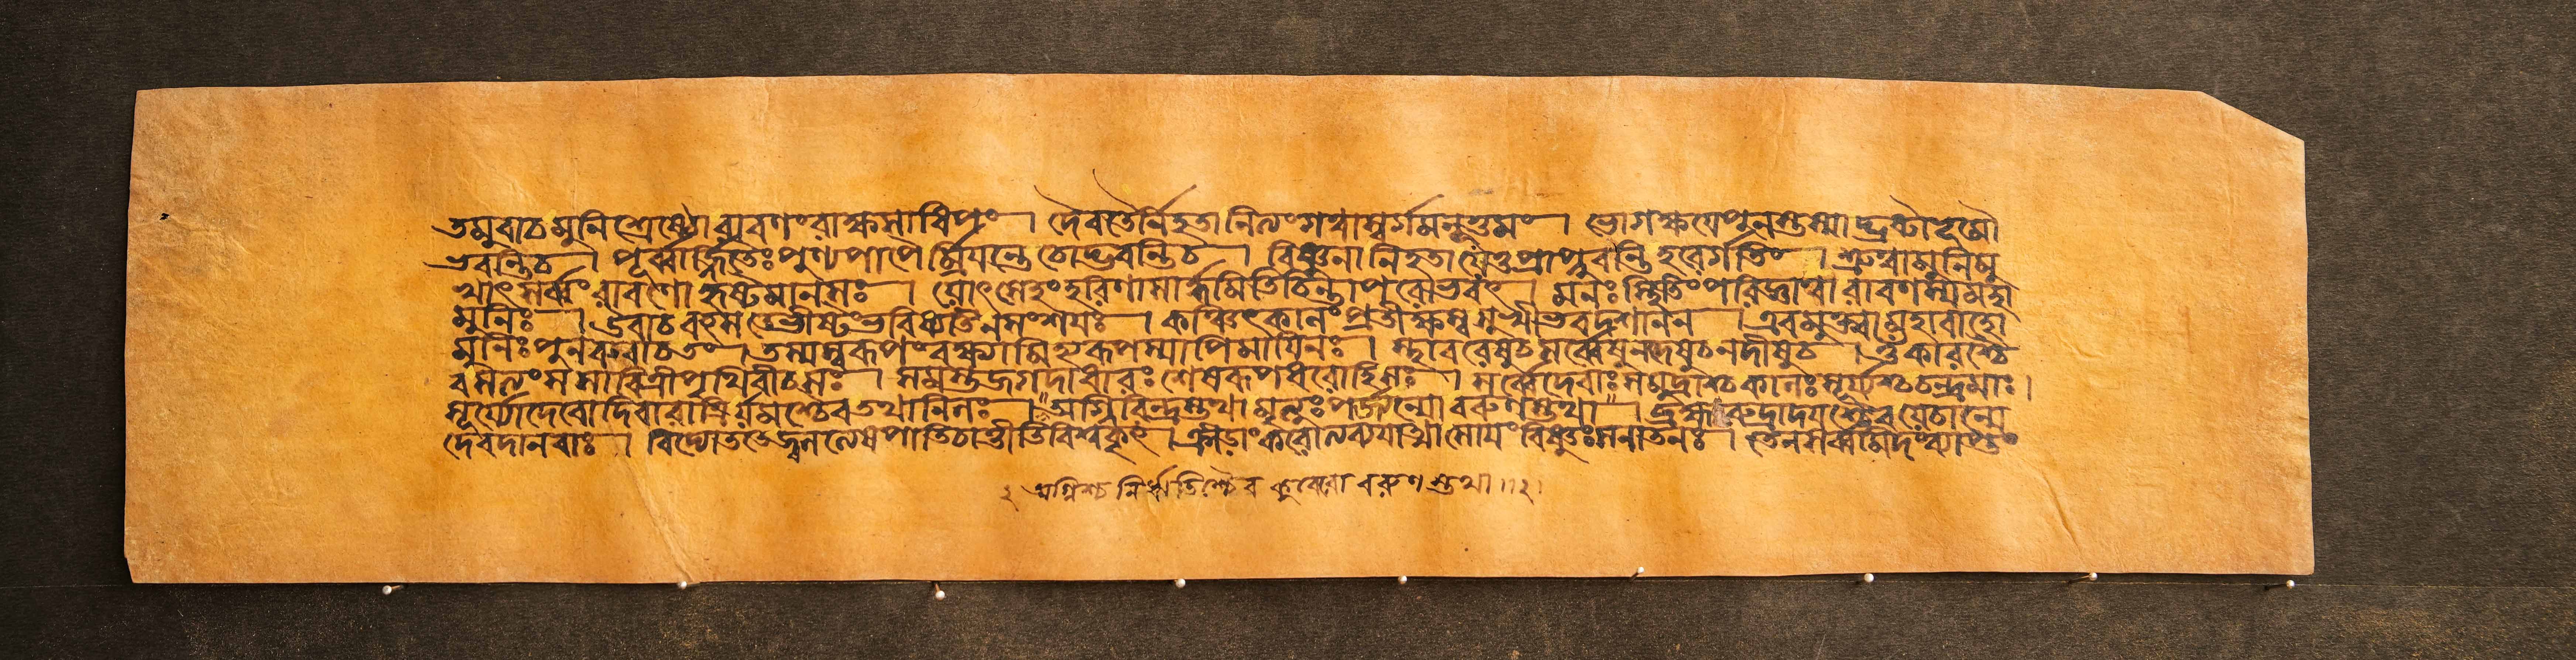 তমুবাচ মুনিশ্রেষ্ঠো রাবণং রাক্ষসাধিপং । দৈবতৈর্নিহতা নিত্যং গত্বা স্বর্গমনুত্তমং । ভোগক্ষয়ে পুনস্তস্মাদ্ভ্রষ্টা ভূমৌ
ভবন্তি চ । পূর্ব্বার্জ্জিতৈঃ পুণ্যপাপৈর্ম্রিয়ন্তে চোদ্ভবন্তি চ । বিষ্ণুনা নিহতা যে তু প্রাপ্নুবন্তি হরের্গতিং । শ্রুত্বা মুনিমু
খাৎ সর্ব্বং রাবণো হৃষ্টমানসঃ । যোৎস্যেহং হরিণা সার্দ্ধমিতি চিন্তাপরোভবৎ । মনঃস্থিতিং পরিজ্ঞায় রাবণস্য মহা
মুনিঃ । উবাচ বৎস তেভীষ্টং ভবিষ্যতি ন সংশয়ঃ । কঞ্চিৎকালং প্রতীক্ষস্ব সুখী ভব দশানন । এবমুক্ত্বা মহাবাহো
মুনিঃ পুনরুবাচ তং । তস্য স্বরূপং বক্ষ্যামি হ্যরূপস্যাপি মায়িনঃ । স্থাবরেষু চ সর্ব্বেষু নদেষু চ নদীষু চ । ওঁকারশ্চৈ
ব সত্যং স সাবিত্রী পৃথিবী চ সঃ । সমস্তজগদাধারঃ শেষরূপধরো হি সঃ । সর্ব্বে দেবাঃ সমুদ্রাশ্চ কালঃ সূর্য্যশ্চ চন্দ্রমাঃ ।
সূর্য্যো দেবো দিবারাত্রির্যমশ্চৈব তথানিলঃ ॥ অগ্নিরিন্দ্রস্তথা মৃত্যুঃ পর্জ্জন্যো বরুণস্তথা ॥ ব্রহ্মা রুদ্রাদয়শ্চৈব যে চান্যে
দেবদানবাঃ । বিদ্যোততে জ্বলত্যেষ পাতি চাত্তীতি বিশ্বকৃৎ । ক্রীড়াং করোত্যব্যয়াত্মা সোয়ং বিষ্ণুঃ সনাতনঃ । তেন সর্ব্বমিদং ব্যাপ্তং
২ অগ্নিশ্চ নির্ঋতিশ্চৈব কুবেরো বরুণস্তথা ॥ ২ ।